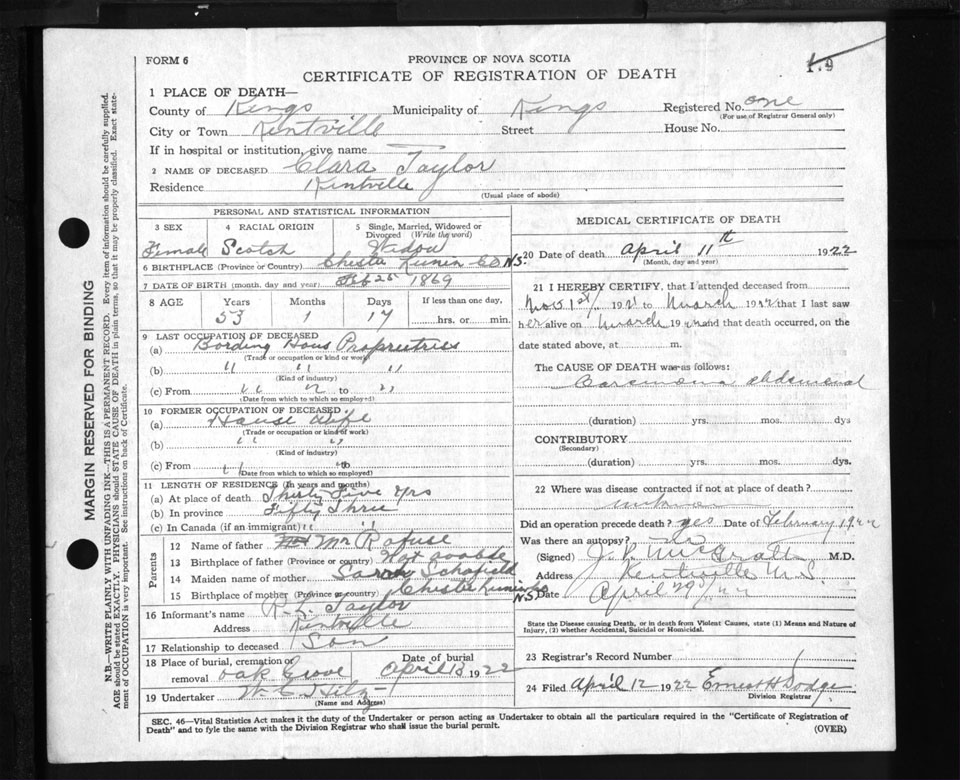 FORM 6
PROVINCE OF NOVA SCOTIA
1.9
CERTIFICATE OF REGISTRATION OF DEATH
1 PLACE OF DEATH—
County of Kings Municipality of Kings Registered No. one
(For use of Registrar General only)
City or Town Kentville Street House No.
If in hospital or institution, give name
2 NAME OF DECEASED Clara Taylor
Residence Kentville
(Usual place of abode)
MARGIN RESERVED FOR BINDING
N.B.—WRITE PLAINLY WITH UNFADING INK—THIS IS A PERMANENT RECORD. Every item of information should be carefully supplied.
AGE should be stated EXACTLY. PHYSICIANS should STATE CAUSE OF DEATH in plain terms, so that it may be properly classified. Exact state-
ment of OCCUPATION is very important. See instructions on back of Certificate.
PERSONAL AND STATISTICAL INFORMATION
3 SEX 4 RACIAL ORIGIN 5 Single, Married, Widowed or
Divorced (Write the word)
Female Scotch Widow
6 BIRTHPLACE (Province or Country) Chester Lunin CO N.S.
7 DATE OF BIRTH (month, day and year) Feb 25 1869
8 AGE Years Months Days If less than one day,
53 1 17 hrs. or min.
9 LAST OCCUPATION OF DECEASED
(a) Bording Hous Proprietries
(Trade or occupation or kind of work)
(b) " " "
(Kind of industry)
(c) From " " to "
(Date from which to which so employed)
10 FORMER OCCUPATION OF DECEASED
(a) House Wife
(Trade or occupation or kind of work)
(b) " "
(Kind of industry)
(c) From " to
(Date from which to which so employed)
11 LENGTH OF RESIDENCE (In years and months)
(a) At place of death Thirty Five Yrs
(b) In province Fifty Three
(c) In Canada (if an immigrant) "
Parents
12 Name of father Mr Rafuse
13 Birthplace of father (Province or country) Not
14 Maiden name of mother Sarah Schofield
15 Birthplace of mother (Province or Country) Chester Lunin Co N.S.
16 Informant's name R. L. Taylor
Address Kentville
17 Relationship to deceased Son
18 Place of burial, cremation or
removal oak Grove
Date of burial
April 13 1922
19 Undertaker W. C.
(Name and Address)
MEDICAL CERTIFICATE OF DEATH
20 Date of death April 11th 1922
(Month, day and year)
21 I HEREBY CERTIFY, that I attended deceased from
Nov 1st 1921 to March 1922 that I last saw
her alive on March 1922 and that death occurred, on the
date stated above, at m.
The CAUSE OF DEATH was as follows:
Carcinoma abdominal
(duration) yrs. mos. dys
CONTRIBUTORY
(Secondary)
(duration) yrs. mos. dys.
22 Where was disease contracted if not at place of death?
Did an operation precede death? yes Date of February 1922
Was there an autopsy? no
(Signed) J. P. McGrath M.D.
Address Kentville N.S.
Date April 29th/22
State the Disease causing Death, or in death from Violent Causes, state (1) Means and Nature of
Injury, (2) whether Accidental, Suicidal or Homicidal.
23 Registrar's Record Number
24 Filed April 12 1922 Ernest H Dodge
Division Registrar
SEC. 46—Vital Statistics Act makes it the duty of the Undertaker or person acting as Undertaker to obtain all the particulars required in the "Certificate of Registration of
Death" and to fyle the same with the Division Registrar who shall issue the burial permit.
(OVER)